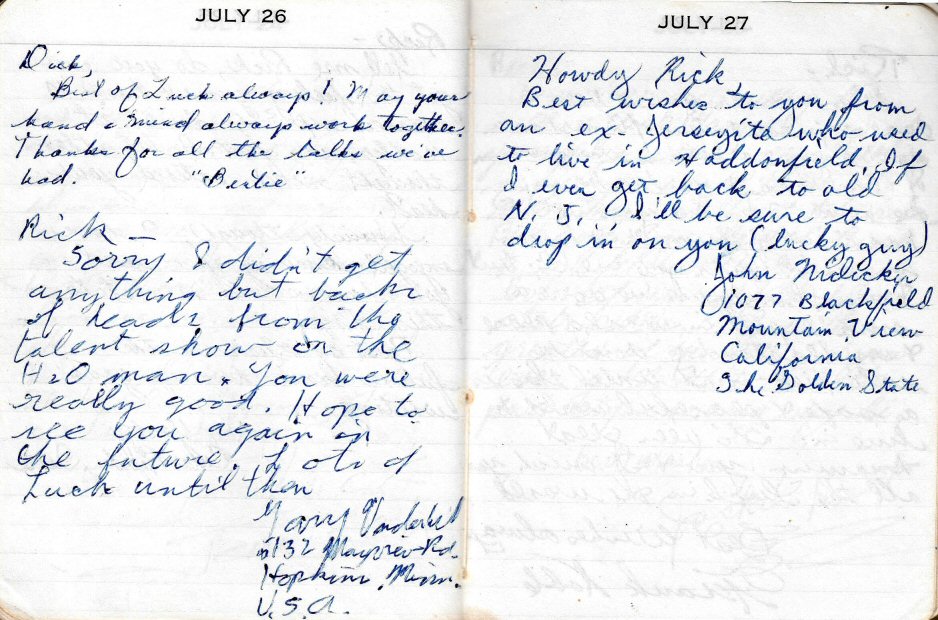 JULY 26
Dick,
Best of Luck always! May your
hand & mind always work together.
Thanks for all the talks we've
had. "Bertie"
Rick —
Sorry I didn't get
anything but backs
of heads from the
talent show or the
H2O man. You were
really good. Hope to
see you again in
the future. Lots of
Luck until then
Gary
5132 Rd.
Hopkins, Minn.
U.S.A.
JULY 27
Howdy Rick,
Best wishes to you from
an ex-Jerseyite who used
to live in Haddonfield. If
I ever get back to old
N. J. I'll be sure to
drop in on you (lucky guy)
John
1077 Blackfield
Mountain View
California
The Golden State